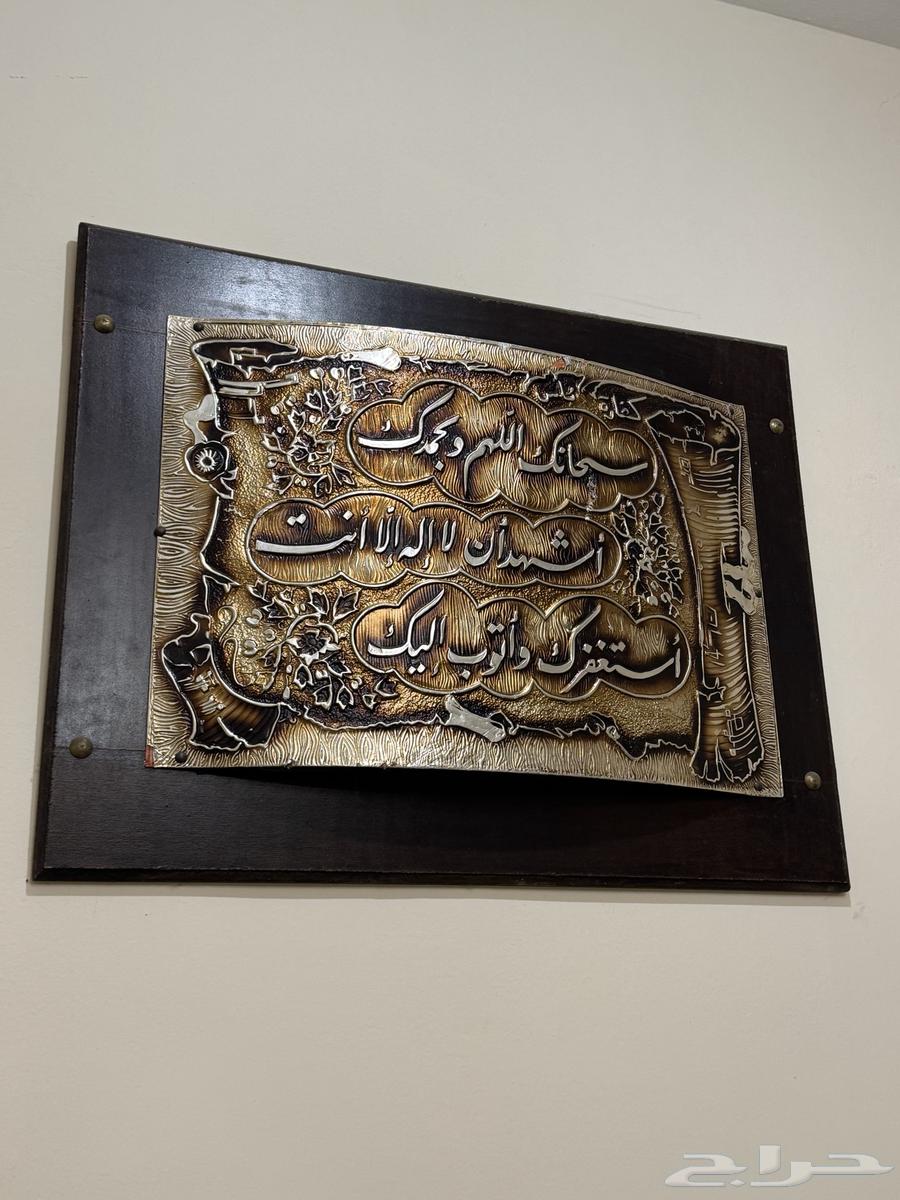 كفارة المجلس
سبحانك اللهم وبحمدك
أشهد أن لا إله إلا أنت
أستغفرك وأتوب إليك
حراج